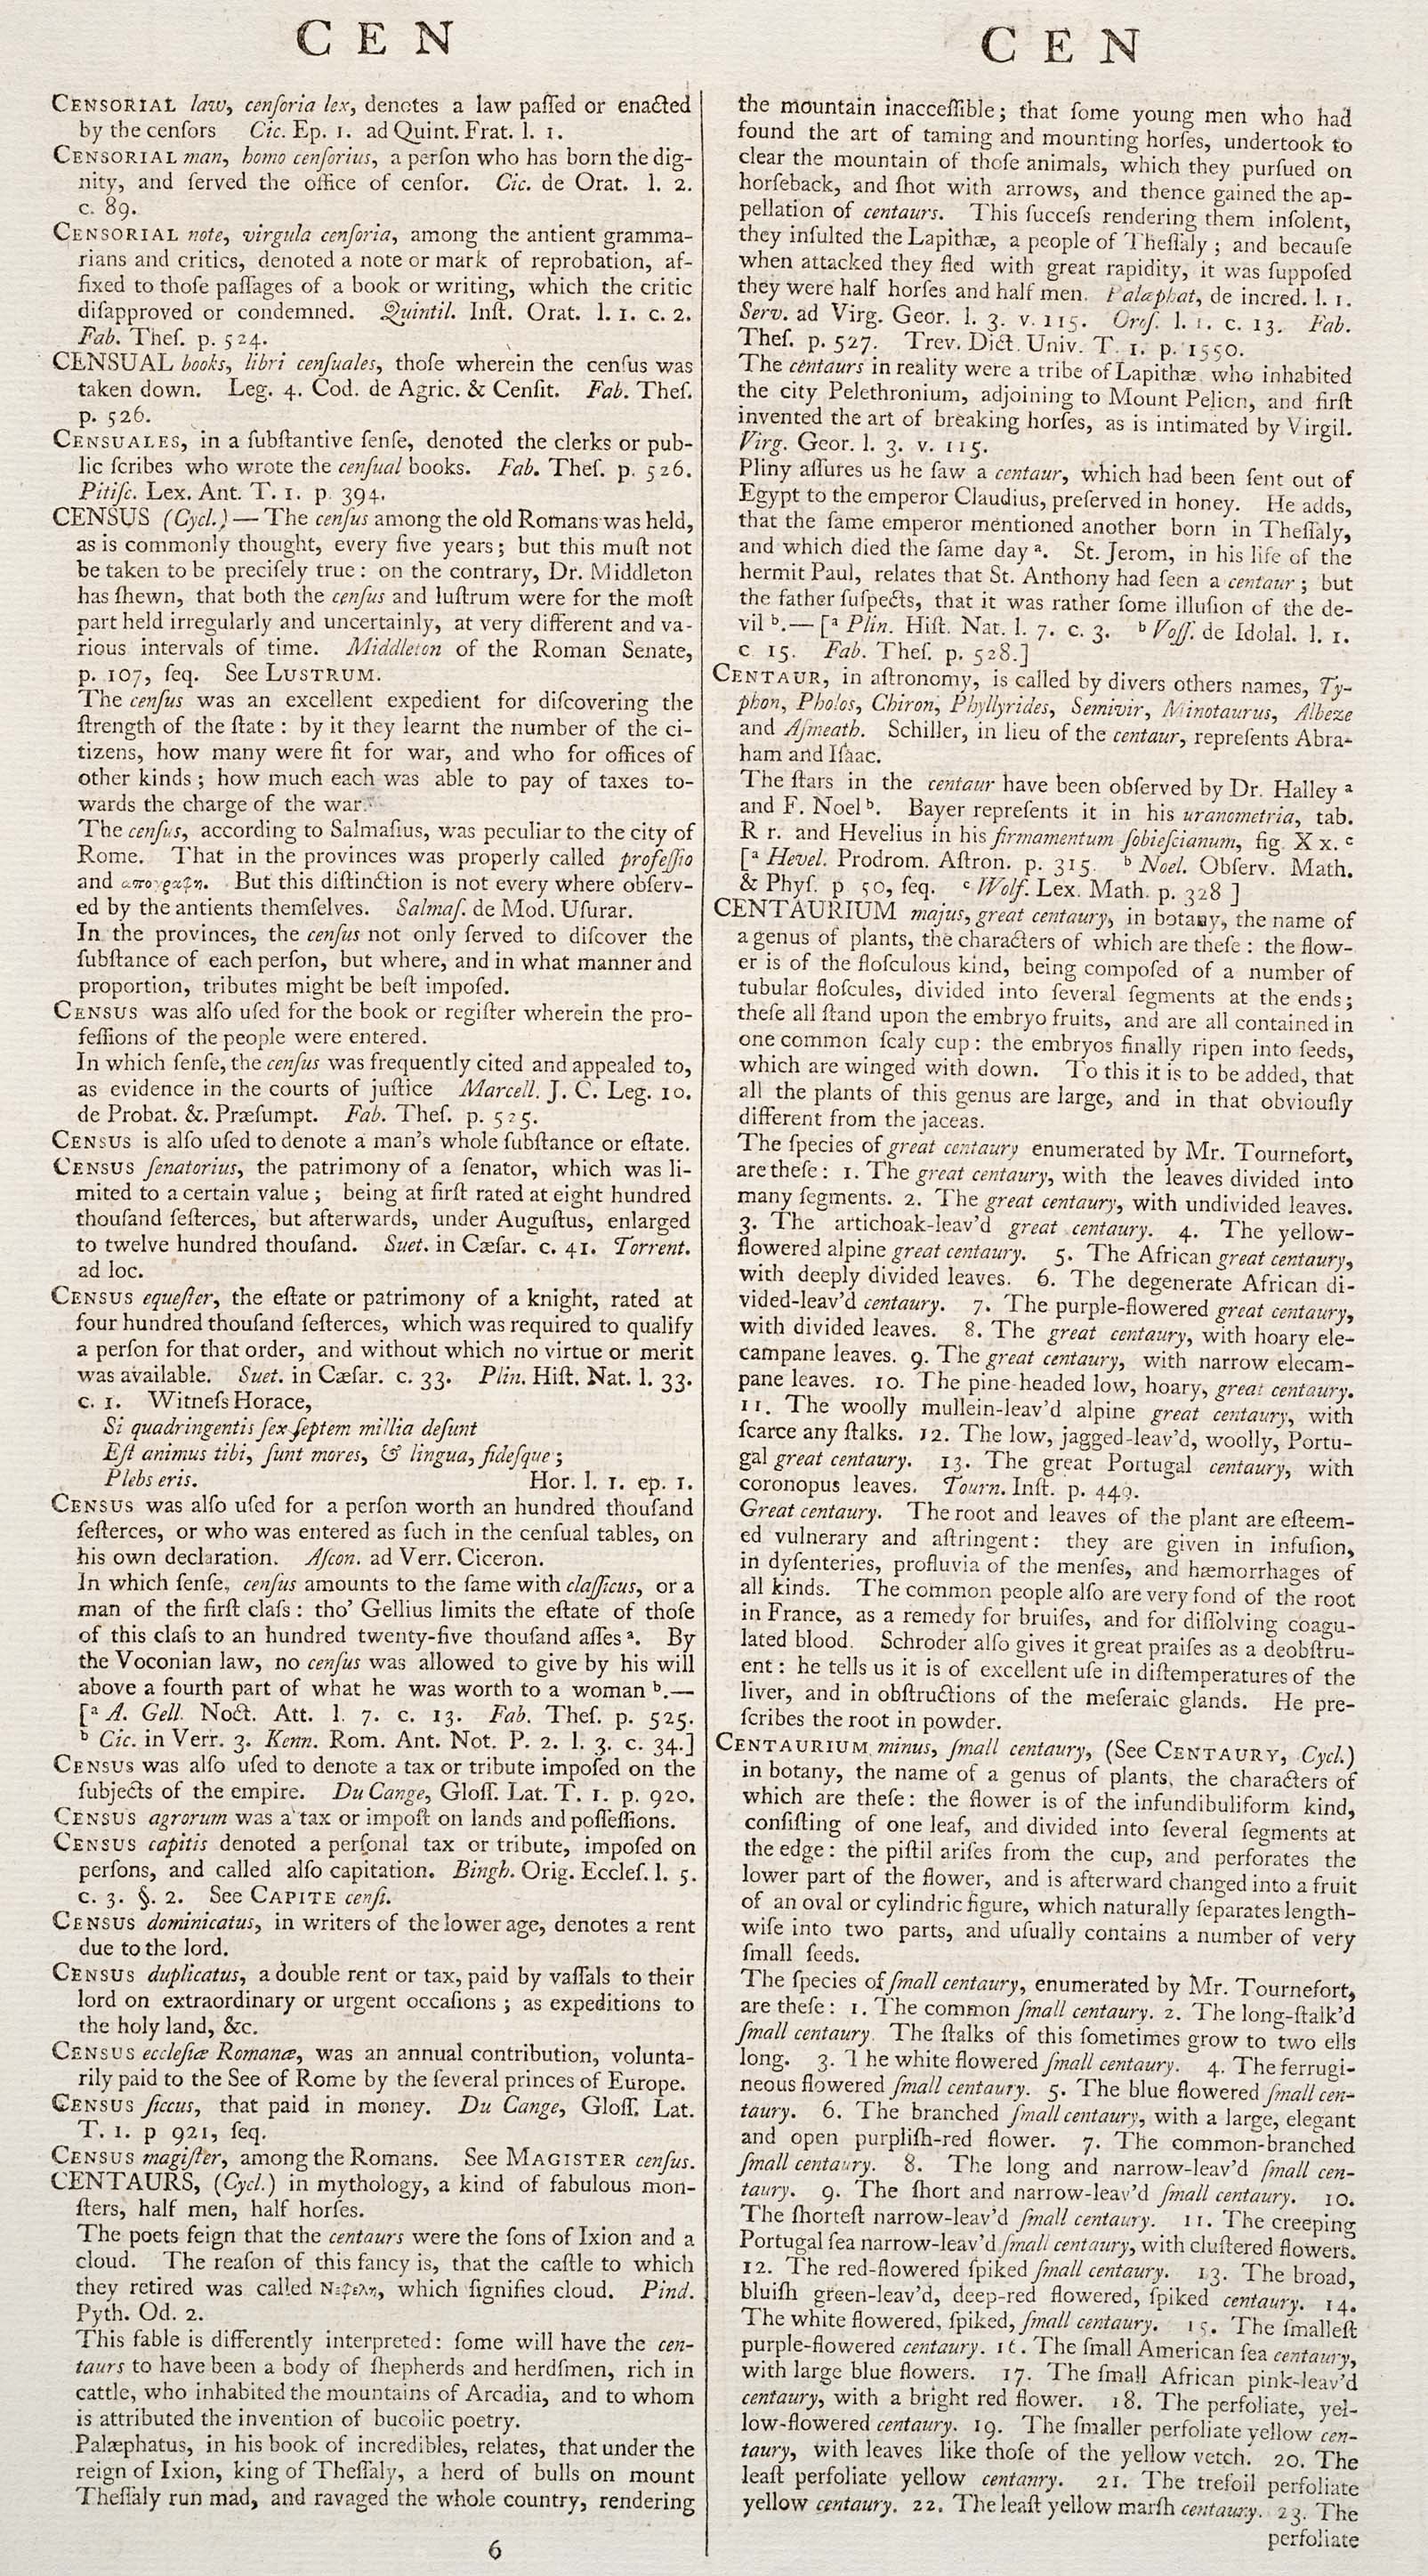 CEN
CENSORIAL law, cenſoria lex, denotes a law paſſed or enacted
by the cenſors Cic. Ep. 1. ad Quint. Frat. l. 1.
CENSORIAL man, homo cenſorius, a perſon who has born the dig-
nity, and ſerved the office of cenſor. Cic. de Orat. l. 2.
c. 89.
CENSORIAL note, virgula cenſoria, among the antient gramma-
rians and critics, denoted a note or mark of reprobation, af-
fixed to thoſe paſſages of a book or writing, which the critic
diſapproved or condemned. Quintil. Inſt. Orat. l. 1. c. 2.
Fab. Theſ. p. 524.
CENSUAL books, libri cenſuales, thoſe wherein the cenſus was
taken down. Leg. 4. Cod. de Agric. & Cenſit. Fab. Theſ.
p. 526.
CENSUALES, in a ſubſtantive ſenſe, denoted the clerks or pub-
lic ſcribes who wrote the cenſual books. Fab. Theſ. p. 526.
Pitiſc. Lex. Ant. T. 1. p. 394.
CENSUS (Cycl.) — The cenſus among the old Romans was held,
as is commonly thought, every five years; but this muſt not
be taken to be preciſely true: on the contrary, Dr. Middleton
has ſhewn, that both the cenſus and luſtrum were for the moſt
part held irregularly and uncertainly, at very different and va-
rious intervals of time. Middleton of the Roman Senate,
p. 107, ſeq. See LUSTRUM.
The cenſus was an excellent expedient for diſcovering the
ſtrength of the ſtate: by it they learnt the number of the ci-
tizens, how many were fit for war, and who for offices of
other kinds; how much each was able to pay of taxes to-
wards the charge of the war.
The cenſus, according to Salmaſius, was peculiar to the city of
Rome. That in the provinces was properly called profeſſio
and απογραφη. But this diſtinction is not every where obſerv-
ed by the antients themſelves. Salmaſ. de Mod. Uſurar.
In the provinces, the cenſus not only ſerved to diſcover the
ſubſtance of each perſon, but where, and in what manner and
proportion, tributes might be beſt impoſed.
CENSUS was alſo uſed for the book or regiſter wherein the pro-
feſſions of the people were entered.
In which ſenſe, the cenſus was frequently cited and appealed to,
as evidence in the courts of juſtice Marcell. J. C. Leg. 10.
de Probat. &. Præſumpt. Fab. Theſ. p. 525.
CENSUS is alſo uſed to denote a man's whole ſubſtance or eſtate.
CENSUS ſenatorius, the patrimony of a ſenator, which was li-
mited to a certain value; being at firſt rated at eight hundred
thouſand ſeſterces, but afterwards, under Auguſtus, enlarged
to twelve hundred thouſand. Suet. in Cæſar. c. 41. Torrent.
ad loc.
CENSUS equeſter, the eſtate or patrimony of a knight, rated at
four hundred thouſand ſeſterces, which was required to qualify
a perſon for that order, and without which no virtue or merit
was available. Suet. in Cæſar. c. 33. Plin. Hiſt. Nat. l. 33.
c. 1. Witneſs Horace,
Si quadringentis ſex ſeptem millia deſunt
Eſt animus tibi, ſunt mores, & lingua, fideſque;
Plebs eris. Hor. l. 1. ep. 1.
CENSUS was alſo uſed for a perſon worth an hundred thouſand
ſeſterces, or who was entered as ſuch in the cenſual tables, on
his own declaration. Aſcon. ad Verr. Ciceron.
In which ſenſe, cenſus amounts to the ſame with claſſicus, or a
man of the firſt claſs: tho' Gellius limits the eſtate of thoſe
of this claſs to an hundred twenty-five thouſand aſſes ᵃ. By
the Voconian law, no cenſus was allowed to give by his will
above a fourth part of what he was worth to a woman ᵇ.—
[ᵃ A. Gell. Noct. Att. l. 7. c. 13. Fab. Theſ. p. 525.
ᵇ Cic. in Verr. 3. Kenn. Rom. Ant. Not. P. 2. l. 3. c. 34.]
CENSUS was alſo uſed to denote a tax or tribute impoſed on the
ſubjects of the empire. Du Cange, Gloſſ. Lat. T. 1. p. 920.
CENSUS agrorum was a tax or impoſt on lands and poſſeſſions.
CENSUS capitis denoted a perſonal tax or tribute, impoſed on
perſons, and called alſo capitation. Bingh. Orig. Eccleſ. l. 5.
c. 3. §. 2. See CAPITE cenſi.
CENSUS dominicatus, in writers of the lower age, denotes a rent
due to the lord.
CENSUS duplicatus, a double rent or tax, paid by vaſſals to their
lord on extraordinary or urgent occaſions; as expeditions to
the holy land, &c.
CENSUS eccleſiæ Romanæ, was an annual contribution, volunta-
rily paid to the See of Rome by the ſeveral princes of Europe.
CENSUS ſiccus, that paid in money. Du Cange, Gloſſ. Lat.
T. 1. p 921, ſeq.
CENSUS magiſter, among the Romans. See MAGISTER cenſus.
CENTAURS, (Cycl.) in mythology, a kind of fabulous mon-
ſters, half men, half horſes.
The poets feign that the centaurs were the ſons of Ixion and a
cloud. The reaſon of this fancy is, that the caſtle to which
they retired was called Νεφελη, which ſignifies cloud. Pind.
Pyth. Od. 2.
This fable is differently interpreted: ſome will have the cen-
taurs to have been a body of ſhepherds and herdſmen, rich in
cattle, who inhabited the mountains of Arcadia, and to whom
is attributed the invention of bucolic poetry.
Palæphatus, in his book of incredibles, relates, that under the
reign of Ixion, king of Theſſaly, a herd of bulls on mount
Theſſaly run mad, and ravaged the whole country, rendering
6
CEN
the mountain inacceſſible; that ſome young men who had
found the art of taming and mounting horſes, undertook to
clear the mountain of thoſe animals, which they purſued on
horſeback, and ſhot with arrows, and thence gained the ap-
pellation of centaurs. This ſucceſs rendering them inſolent,
they inſulted the Lapithæ, a people of Theſſaly; and becauſe
when attacked they fled with great rapidity, it was ſuppoſed
they were half horſes and half men. Palæphat, de incred. l. 1.
Serv. ad Virg. Geor. l. 3. v. 115. Oroſ. l. 1. c. 13. Fab.
Theſ. p. 527. Trev. Dict. Univ. T. 1. p. 1550.
The centaurs in reality were a tribe of Lapithæ who inhabited
the city Pelethronium, adjoining to Mount Pelion, and firſt
invented the art of breaking horſes, as is intimated by Virgil.
Virg. Geor. l. 3. v. 115.
Pliny aſſures us he ſaw a centaur, which had been ſent out of
Egypt to the emperor Claudius, preſerved in honey. He adds,
that the ſame emperor mentioned another born in Theſſaly,
and which died the ſame day ᵃ. St. Jerom, in his life of the
hermit Paul, relates that St. Anthony had ſeen a centaur; but
the father ſuſpects, that it was rather ſome illuſion of the de-
vil ᵇ.—[ᵃ Plin. Hiſt. Nat. l. 7. c. 3. ᵇ Voſſ. de Idolal. l. 1.
c 15. Fab. Theſ. p. 528.]
CENTAUR, in aſtronomy, is called by divers others names, Ty-
phon, Pholos, Chiron, Phyllyrides, Semivir, Minotaurus, Albeze
and Aſmeath. Schiller, in lieu of the centaur, repreſents Abra-
ham and Iſaac.
The ſtars in the centaur have been obſerved by Dr. Halley ᵃ
and F. Noel ᵇ. Bayer repreſents it in his uranometria, tab.
R r. and Hevelius in his firmamentum ſobieſcianum, fig X x. ᶜ
[ᵃ Hevel. Prodrom. Aſtron. p. 315. ᵇ Noel. Obſerv. Math.
& Phyſ. p 50, ſeq. ᶜ Wolf. Lex. Math. p. 328 ]
CENTAURIUM majus, great centaury, in botany, the name of
a genus of plants, the characters of which are theſe: the flow-
er is of the floſculous kind, being compoſed of a number of
tubular floſcules, divided into ſeveral ſegments at the ends;
theſe all ſtand upon the embryo fruits, and are all contained in
one common ſcaly cup: the embryos finally ripen into ſeeds,
which are winged with down. To this it is to be added, that
all the plants of this genus are large, and in that obviouſly
different from the jaceas.
The ſpecies of great centaury enumerated by Mr. Tournefort,
are theſe: 1. The great centaury, with the leaves divided into
many ſegments. 2. The great centaury, with undivided leaves.
3. The artichoak-leav'd great centaury. 4. The yellow-
flowered alpine great centaury. 5. The African great centaury,
with deeply divided leaves. 6. The degenerate African di-
vided-leav'd centaury. 7. The purple-flowered great centaury,
with divided leaves. 8. The great centaury, with hoary ele-
campane leaves. 9. The great centaury, with narrow elecam-
pane leaves. 10. The pine-headed low, hoary, great centaury.
11. The woolly mullein-leav'd alpine great centaury, with
ſcarce any ſtalks. 12. The low, jagged-leav'd, woolly, Portu-
gal great centaury. 13. The great Portugal centaury, with
coronopus leaves. Tourn. Inſt. p. 449.
Great centaury. The root and leaves of the plant are eſteem-
ed vulnerary and aſtringent: they are given in infuſion,
in dyſenteries, profluvia of the menſes, and hæmorrhages of
all kinds. The common people alſo are very fond of the root
in France, as a remedy for bruiſes, and for diſſolving coagu-
lated blood. Schroder alſo gives it great praiſes as a deobſtru-
ent: he tells us it is of excellent uſe in diſtemperatures of the
liver, and in obſtructions of the meſeraic glands. He pre-
ſcribes the root in powder.
CENTAURIUM minus, ſmall centaury, (See CENTAURY, Cycl.)
in botany, the name of a genus of plants, the characters of
which are theſe: the flower is of the infundibuliform kind,
conſiſting of one leaf, and divided into ſeveral ſegments at
the edge: the piſtil ariſes from the cup, and perforates the
lower part of the flower, and is afterward changed into a fruit
of an oval or cylindric figure, which naturally ſeparates length-
wiſe into two parts, and uſually contains a number of very
ſmall ſeeds.
The ſpecies of ſmall centaury, enumerated by Mr. Tournefort,
are theſe: 1. The common ſmall centaury. 2. The long-ſtalk'd
ſmall centaury. The ſtalks of this ſometimes grow to two ells
long. 3. The white flowered ſmall centaury. 4. The ferrugi-
neous flowered ſmall centaury. 5. The blue flowered ſmall cen-
taury. 6. The branched ſmall centaury, with a large, elegant
and open purpliſh-red flower. 7. The common-branched
ſmall centaury. 8. The long and narrow-leav'd ſmall cen-
taury. 9. The ſhort and narrow-leav'd ſmall centaury. 10.
The ſhorteſt narrow-leav'd ſmall centaury. 11. The creeping
Portugal ſea narrow-leav'd ſmall centaury, with cluſtered flowers.
12. The red-flowered ſpiked ſmall centaury. 13. The broad,
bluiſh green-leav'd, deep-red flowered, ſpiked centaury. 14.
The white flowered, ſpiked, ſmall centaury. 15. The ſmalleſt
purple-flowered centaury. 16. The ſmall American ſea centaury,
with large blue flowers. 17. The ſmall African pink-leav'd
centaury, with a bright red flower. 18. The perfoliate, yel-
low-flowered centaury. 19. The ſmaller perfoliate yellow cen-
taury, with leaves like thoſe of the yellow vetch. 20. The
leaſt perfoliate yellow centanry. 21. The trefoil perfoliate
yellow centaury. 22. The leaſt yellow marſh centaury. 23. The
perfoliate